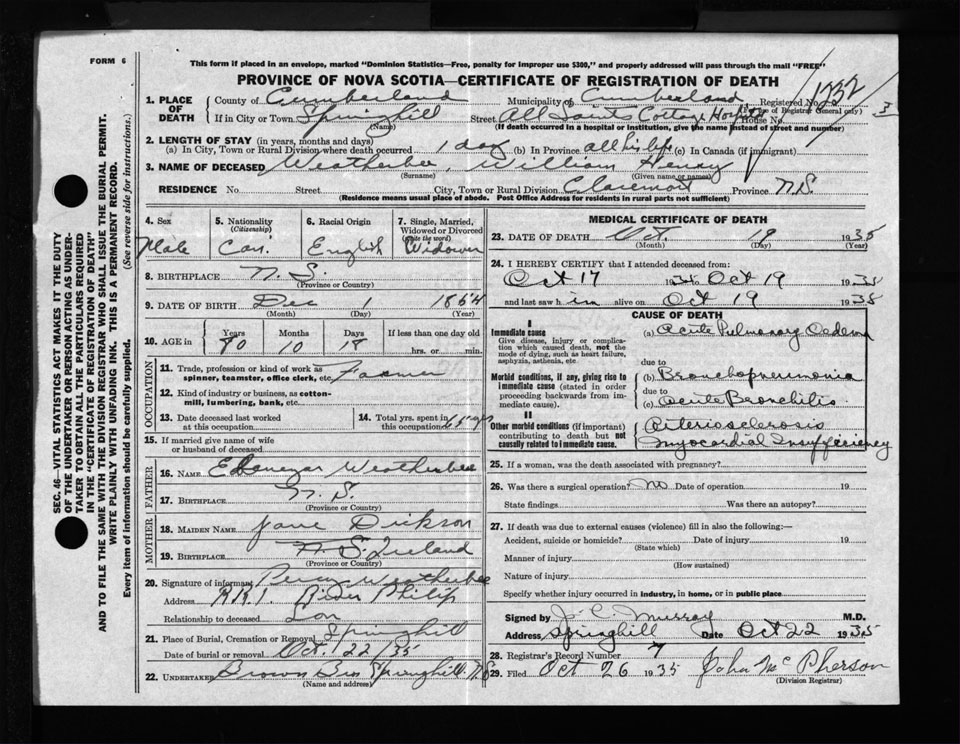 FORM 6
This form if placed in an envelope, marked "Dominion Statistics—Free, penalty for improper use $300," and properly addressed will pass through the mail "FREE"
PROVINCE OF NOVA SCOTIA—CERTIFICATE OF REGISTRATION OF DEATH
SEC. 46—VITAL STATISTICS ACT MAKES IT THE DUTY
OF THE UNDERTAKER OR PERSON ACTING AS UNDER-
TAKER TO OBTAIN ALL THE PARTICULARS REQUIRED
IN THE "CERTIFICATE OF REGISTRATION OF DEATH"
AND TO FILE THE SAME WITH THE DIVISION REGISTRAR WHO SHALL ISSUE THE BURIAL PERMIT.
WRITE PLAINLY WITH UNFADING INK. THIS IS A PERMANENT RECORD.
Every item of Information should be carefully supplied. (See reverse side for instructions.)
1. PLACE OF DEATH
County of Cumberland Municipality of Cumberland Registered No. 1232
(For use of Registrar General only) 3
If in City or Town Springhill Street All Saints Cottage Hospital House No.
(Name) (If death occurred in a hospital or institution, give the name instead of street and number)
2. LENGTH OF STAY (in years, months and days)
(a) In City, Town or Rural Division where death occurred 1 day (b) In Province all his life (c) In Canada (if immigrant)
3. NAME OF DECEASED Weatherbee, William Henry
(Surname) (Given name or names)
RESIDENCE No. Street City, Town or Rural Division Claremont Province N.S.
(Residence means usual place of abode. Post Office Address for residents in rural parts not sufficient)
4. Sex
Male
5. Nationality
(Citizenship)
Can.
6. Racial Origin
English
7. Single, Married,
Widowed or Divorced
(write the word)
Widower
8. BIRTHPLACE N.S.
(Province or Country)
9. DATE OF BIRTH Dec 1 1854
(Month) (Day) (Year)
10. AGE in
Years Months Days If less than one day old
80 10 18 hrs. or min.
OCCUPATION
11. Trade, profession or kind of work as
spinner, teamster, office clerk, etc. Farmer
12. Kind of industry or business, as cotton-
mill, lumbering, bank, etc.
13. Date deceased last worked
at this occupation
14. Total yrs. spent in
this occupation 65 yrs
15. If married give name of wife
or husband of deceased
FATHER
16. NAME Ebenezer Weatherbee
17. BIRTHPLACE N.S.
(Province or Country)
MOTHER
18. MAIDEN NAME Jane Dickson
19. BIRTHPLACE N.S. Ireland
(Province or Country)
20. Signature of informant Percy Weatherbee
Address R.R.1. River Philip
Relationship to deceased Son
21. Place of Burial, Cremation or Removal Springhill
Date of burial or removal Oct. 22/35
22. UNDERTAKER Brown Bros Springhill N.S
(Name and address)
MEDICAL CERTIFICATE OF DEATH
23. DATE OF DEATH Oct. 19 1935
(Month) (Day) (Year)
24. I HEREBY CERTIFY that I attended deceased from:
Oct 17 1935 to Oct 19 1935
and last saw him alive on Oct 19 1935
CAUSE OF DEATH
I
Immediate cause (a) Acute Pulmonary Oedema
Give disease, injury or complica-
tion which caused death, not the
mode of dying, such as heart failure,
asphyxia, asthenia, etc. due to
Morbid conditions, if any, giving rise to (b) Bronchopneumonia
immediate cause (stated in order due to
proceeding backwards from im-
mediate cause). (c) Acute Bronchitis
II
Other morbid conditions (if important) Arteriosclerosis
contributing to death but not
causally related to immediate cause. Myocardial Insufficiency
25. If a woman, was the death associated with pregnancy?
26. Was there a surgical operation? No Date of operation 19
State findings Was there an autopsy?
27. If death was due to external causes (violence) fill in also the following:—
Accident, suicide or homicide? Date of injury 19
(State which)
Manner of injury
(How sustained)
Nature of injury
Specify whether injury occurred in industry, in home, or in public place
Signed by J. C. Murray M.D.
Address Springhill Date Oct 22 1935
28. Registrar's Record Number 7
29. Filed Oct 26 1935 John McPherson
(Division Registrar)